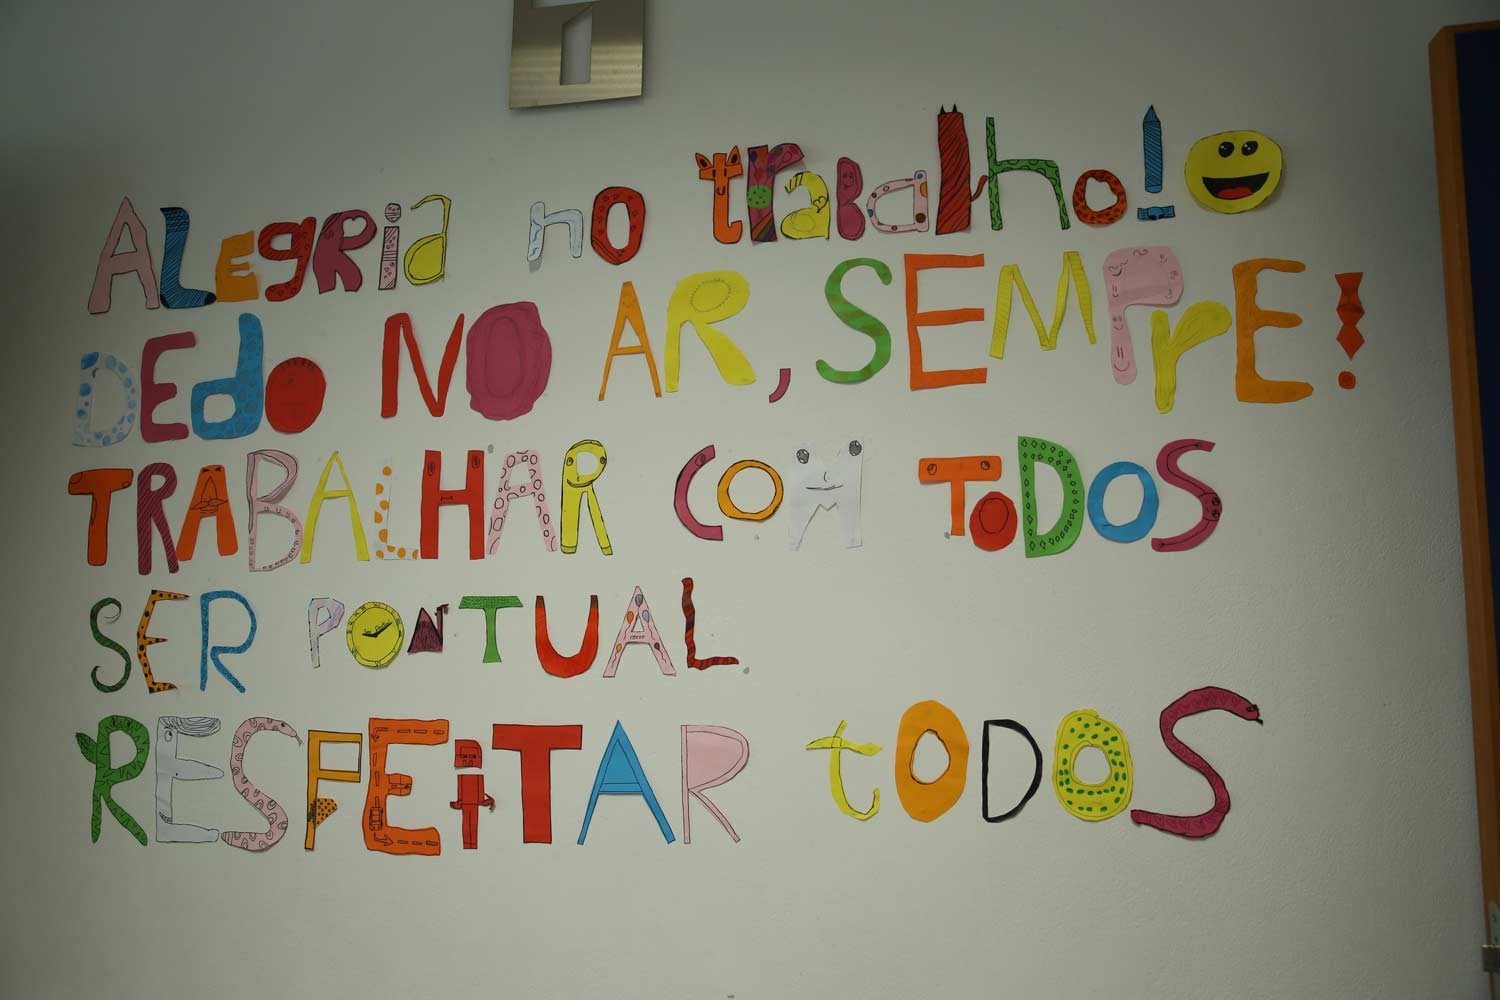 ALEgRiа no trabalho!
DEdo NO AR, SEMPrE!
TRABALHAR COM ToDOS
SER PONTUAL.
RESPEiTAR tODOS